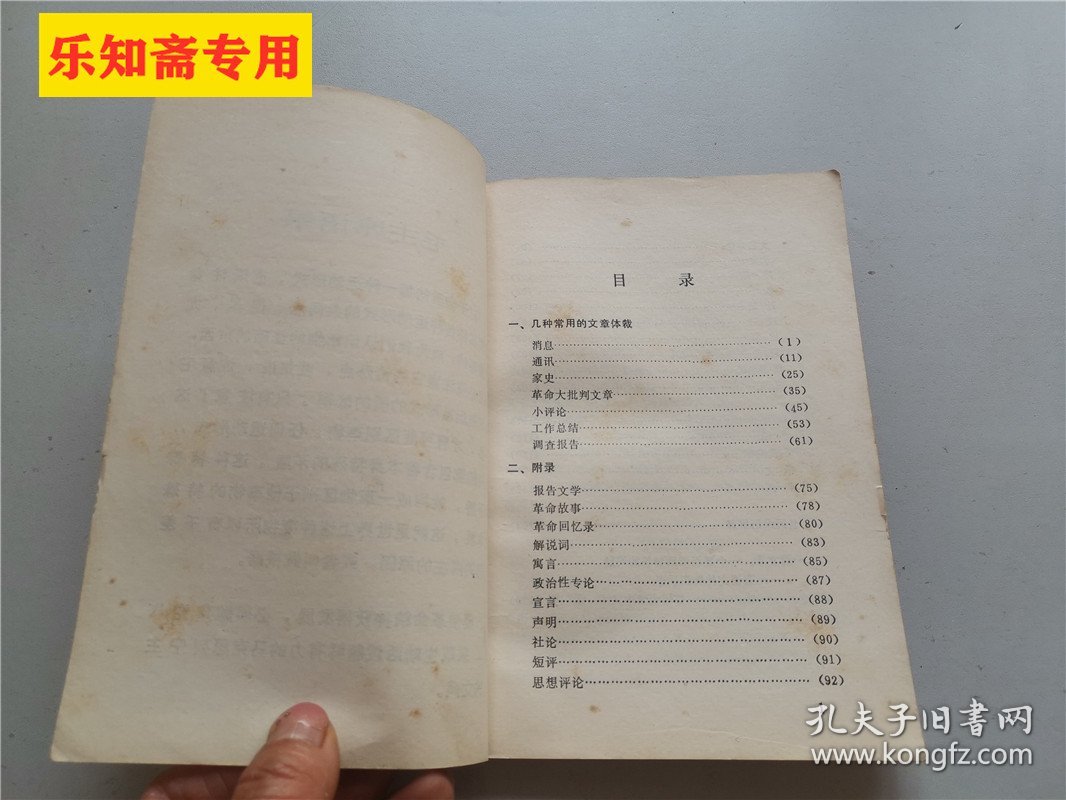 乐知斋专用
目 录
一、几种常用的文章体裁
消息……………………(1)
通讯……………………(11)
家史……………………(25)
革命大批判文章……………………(35)
小评论……………………(45)
工作总结……………………(53)
调查报告……………………(61)
二、附录
报告文学……………………(75)
革命故事……………………(78)
革命回忆录……………………(80)
解说词……………………(83)
寓言……………………(85)
政治性专论……………………(87)
宣言……………………(88)
声明……………………(89)
社论……………………(90)
短评……………………(91)
思想评论……………………(92)
孔夫子旧书网
www.kongfz.com